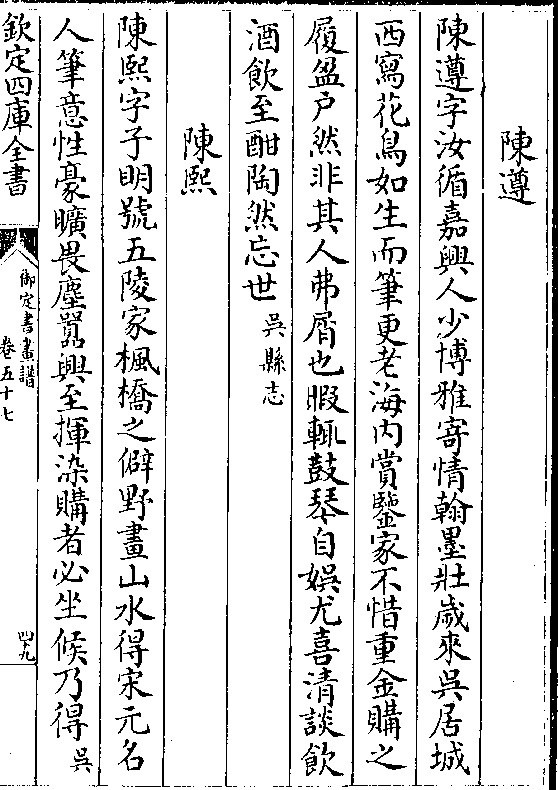 陳遵
陳遵字汝循嘉興人少博雅寄情翰墨壯歲來吳居城
西寫花鳥如生而筆更老海内賞鑒家不惜重金購之
履盈户然非其人弗屑也暇輒鼓琴自娛尤喜清談飲
酒飲至酣陶然忘世吳縣志
陳熙
陳熙字子明號五陵家楓橋之僻野畫山水得宋元名
人筆意性豪曠畏塵囂興至揮染購者必坐候乃得吳
欽定四庫全書
御定書畫譜
卷五十七
四十九